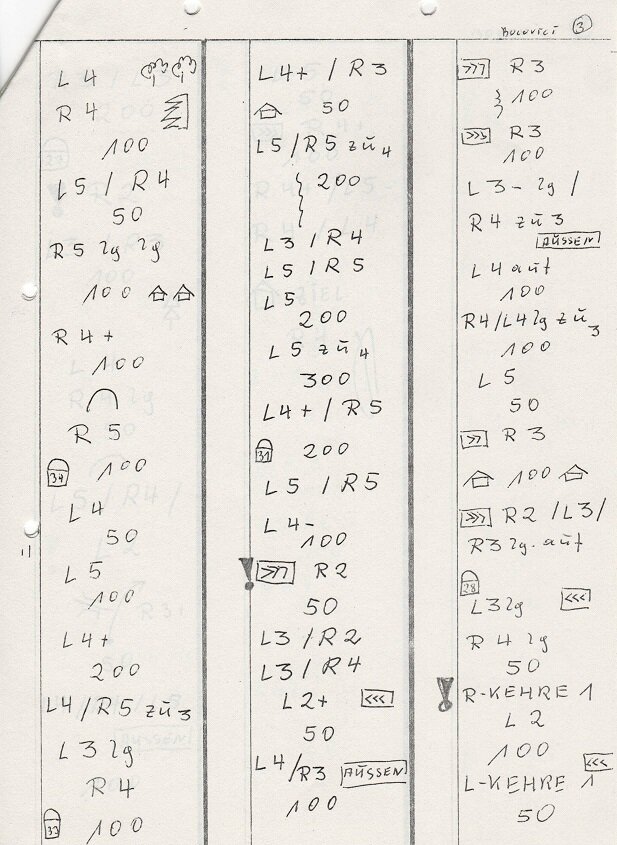 BUCOVICI 3
L4
R4
100
L5 / R4
50
R5 lg lg
100
R4+
100
R5
34 100
L4
50
L5
100
L4+
200
L4/R5 zu 3
L3 lg
R4
33 100
L4+ / R3
50
L5/R5 zu 4
200
L3 / R4
L5 / R5
L5
200
L5 zu 4
300
L4+ / R5
31 200
L5 / R5
L4-
100
! >>> R2
50
L3 / R2
L3 / R4
L2+ <<<
50
L4/R3 AUSSEN
100
>>> R3
100
>>> R3
100
L3- lg /
R4 zu 3
AUSSEN
L4 auf
100
R4/L4 lg zu 3
100
L5
50
>>> R3
100
>>> R2 / L3 /
R3 lg. auf
28
L3 lg <<<
R4 lg
50
! R-KEHRE 1
L2
100
<<<
L-KEHRE 1
50